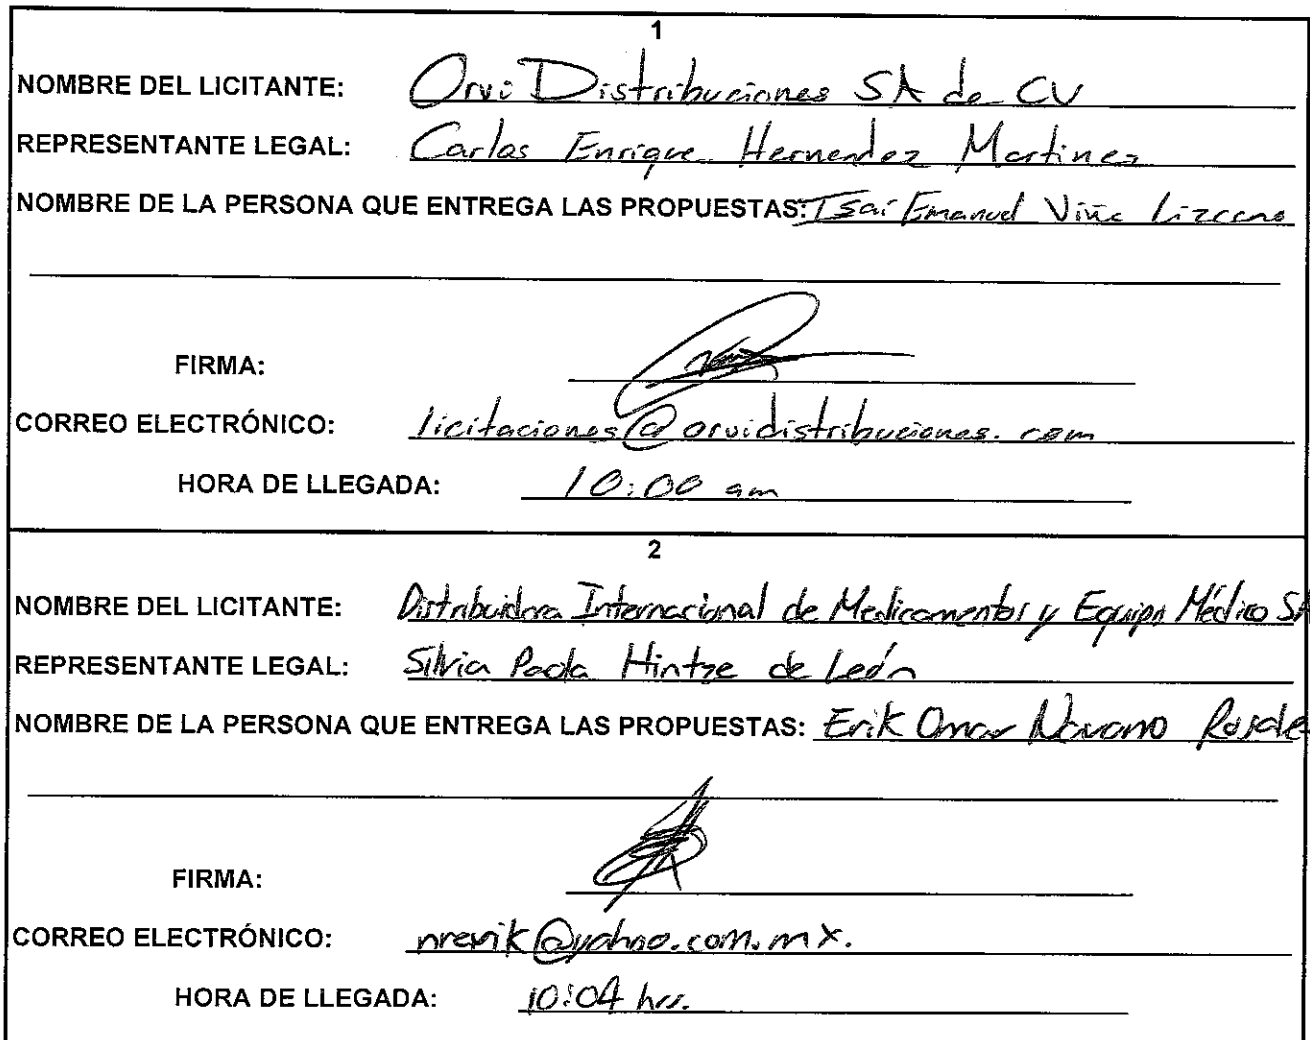 1
NOMBRE DEL LICITANTE: Orvi Distribuciones SA de CV
REPRESENTANTE LEGAL: Carlos Enrique Hernendez Martinez
NOMBRE DE LA PERSONA QUE ENTREGA LAS PROPUESTAS: Isai Emanuel
FIRMA:
CORREO ELECTRÓNICO: licitaciones@orvidistribuciones.com
HORA DE LLEGADA: 10:00 am
2
NOMBRE DEL LICITANTE: Distribuidora Internacional de Medicamentos y Equipo Médico SA
REPRESENTANTE LEGAL: Silvia Paola Hintze de León
NOMBRE DE LA PERSONA QUE ENTREGA LAS PROPUESTAS: Erik Omar Navarro Rosale
FIRMA:
CORREO ELECTRÓNICO: nrerik@yahoo.com.mx.
HORA DE LLEGADA: 10:04 hrs.